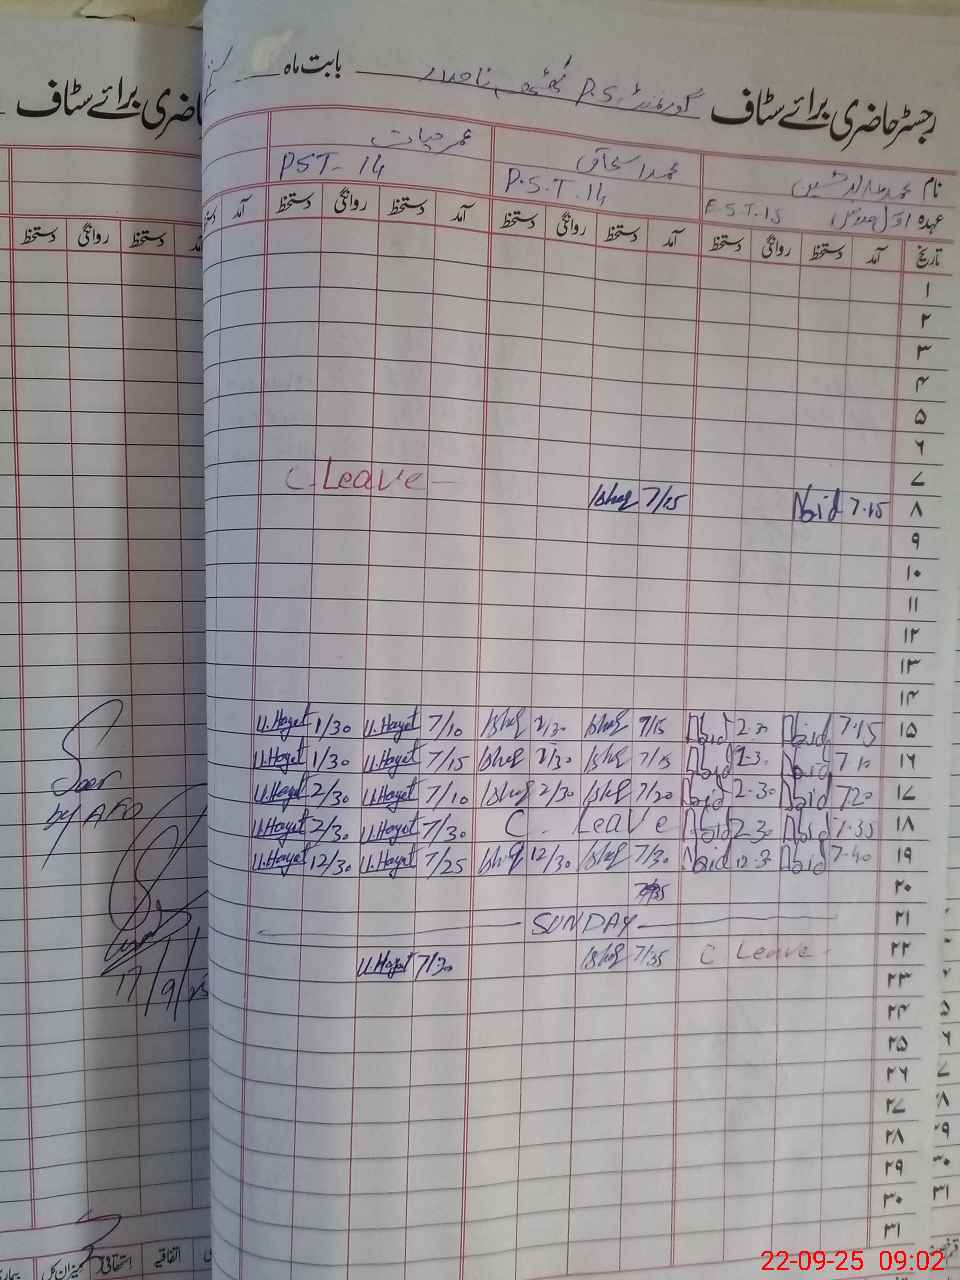 حاضری برائے سٹاف
رجسٹر حاضری برائے سٹاف گورنمنٹ P.S بابت ماہ
نام محمد اسحاق عمر حیات
عہدہ E.S.T-15 P.S.T.14 PST-14
تاریخ آمد دستخط روانگی دستخط آمد دستخط روانگی دستخط آمد دستخط روانگی دستخط آمد
دستخط روانگی دستخط
۱
۲
۳
۴
۵
۶
۷
C. Leave
۸ 7.15 Abid 7/25 Ishaq
۹
۱۰
۱۱
۱۲
۱۳
۱۴
۱۵ 7.15 Abid 2.30 Abid Ishaq Ishaq 7/10 U.Hayat 1/30 U.Hayat
۱۶ 7.10 Abid Abid 7/15 Ishaq Ishaq 7/15 U.Hayat 1/30 U.Hayat
۱۷ 720 Abid 2.30 Abid 7/20 Ishaq 2/30 Ishaq 7/10 U.Hayat 2/30 U.Hayat
۱۸ 7.35 Abid 2.30 Abid C. Leave 7/30 U.Hayat 2/30 U.Hayat
۱۹ 7.40 Abid Abid 7/30 Ishaq 12/30 Ishaq 7/25 U.Hayat 12/30 U.Hayat
۲۰
۲۱ SUNDAY
۲۲ C Leave 7/35 Ishaq 7/30 U.Hayat
۲۳
۲۴
۲۵
۲۶
۲۷
۲۸
۲۹
۳۰
۳۱
Seen
by AEO
17/9/25
اتفاقیہ استحقاقی میزان کل بیماری
22-09-25 09:02